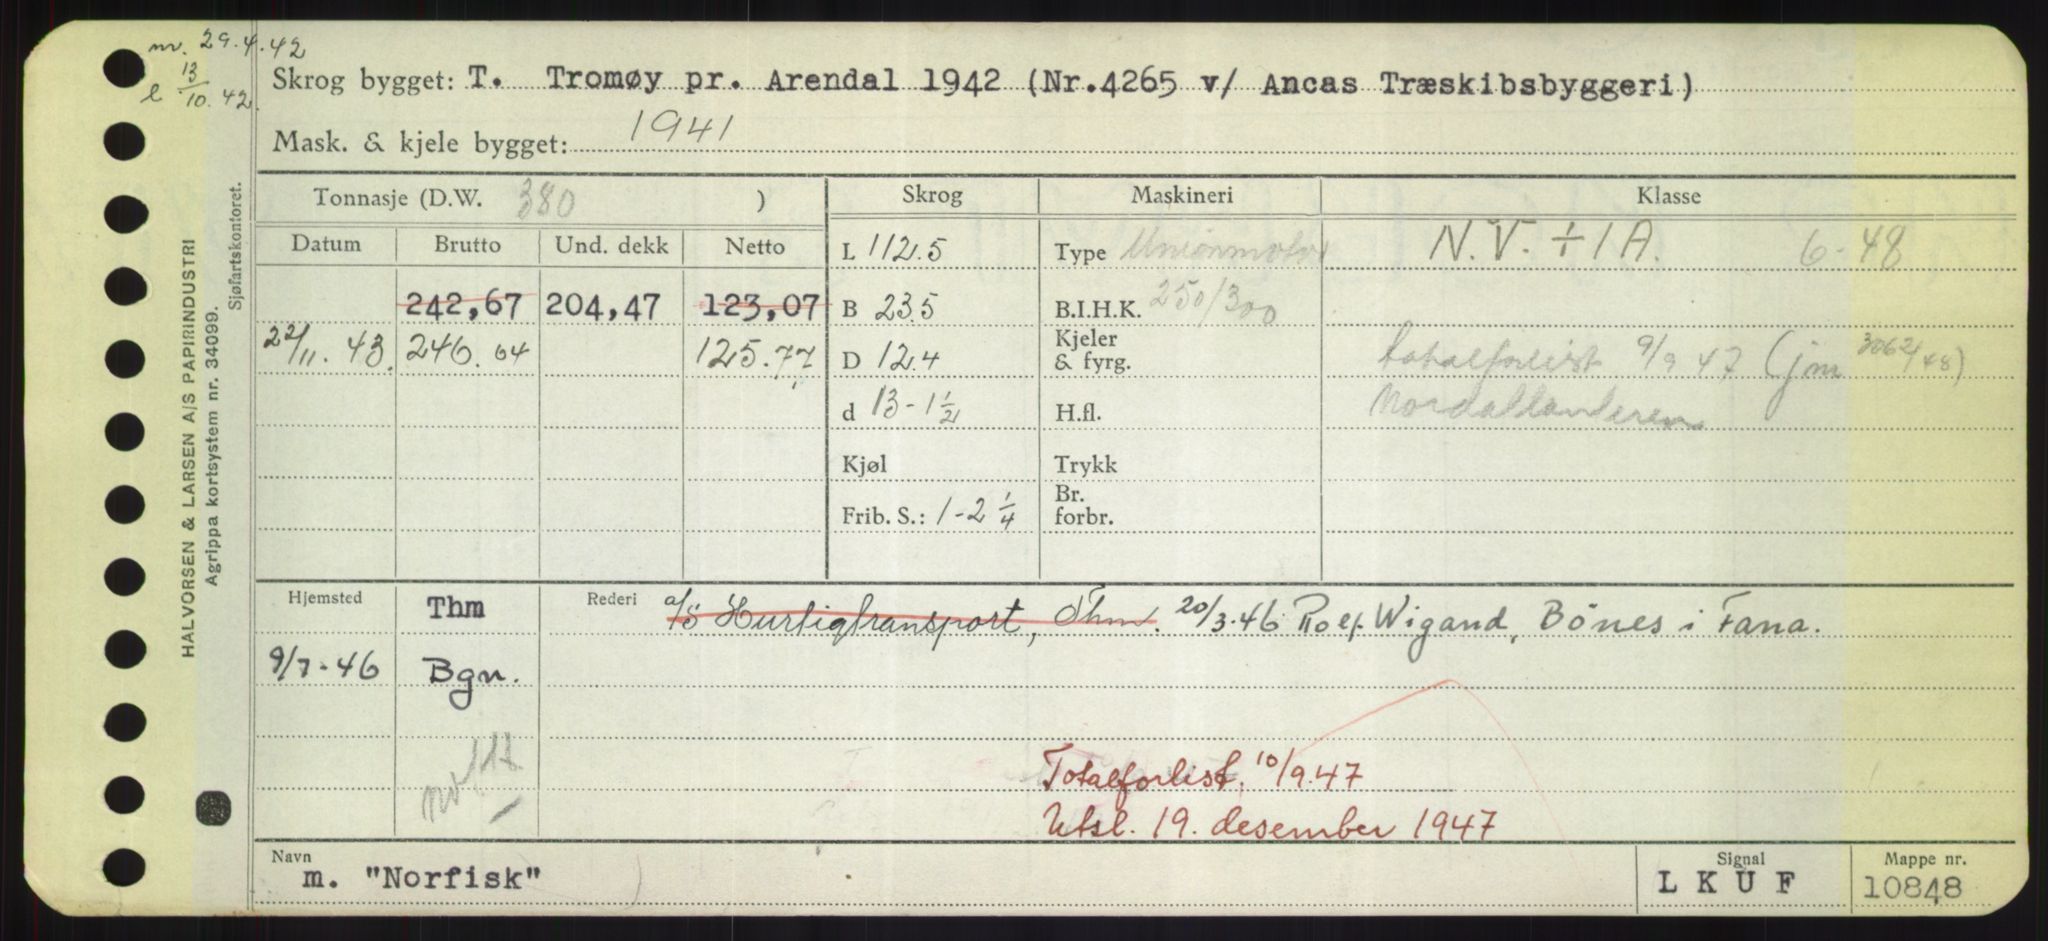 nr. 29.4.42
13/10.42
Skrog bygget: T. Tromøy pr. Arendal 1942 (Nr.4265 v/ Ancas Træskibsbyggeri)
Mask. & kjele bygget: 1941
Tonnasje (D.W. 380 )
Skrog
Maskineri
Klasse
Datum
Brutto
Und. dekk
Netto
L 112.5
Type Unionmotor
N.V. ÷ 1A. 6-48
242,67
204,47
123,07
B 23.5
B.I.H.K. 250/300
22/11.43.
246.64
125.77
D 12.4
Kjeler & fyrg.
totalforlist 9/9 47 (jm 3062/48)
d 13-1 1/2
H.fl.
Kjøl
Trykk
Frib. S.: 1-2 1/4
Br. forbr.
Hjemsted
Thm
Rederi
a/s Hurtigtransport, Thm. 20/3.46 Rolf Wigand, Bönes i Fana.
9/7-46 Bgn.
Totalforlist. 10/9.47
Utsl. 19. desember 1947
Navn
m. "Norfisk"
Signal
LKUF
Mappe nr.
10848
HALVORSEN & LARSEN A/S PAPIRINDUSTRI
Agrippa kortsystem nr. 34099.
Sjøfartskontoret.